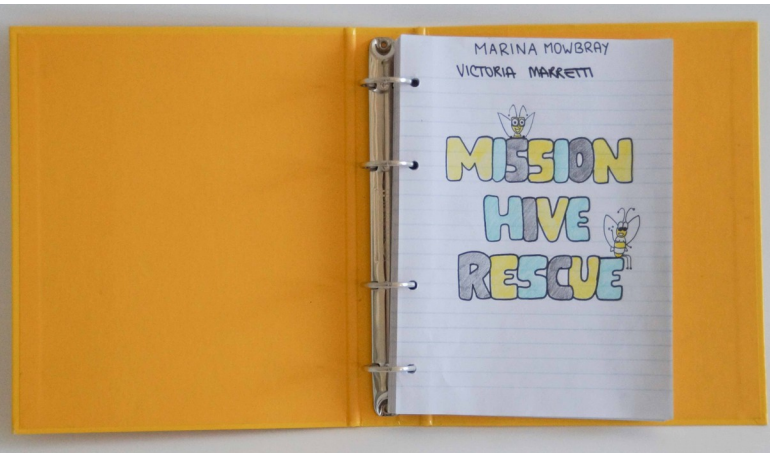 MARINA MOWBRAY
VICTORIA MARRETTI
MISSION
HIVE
RESCUE